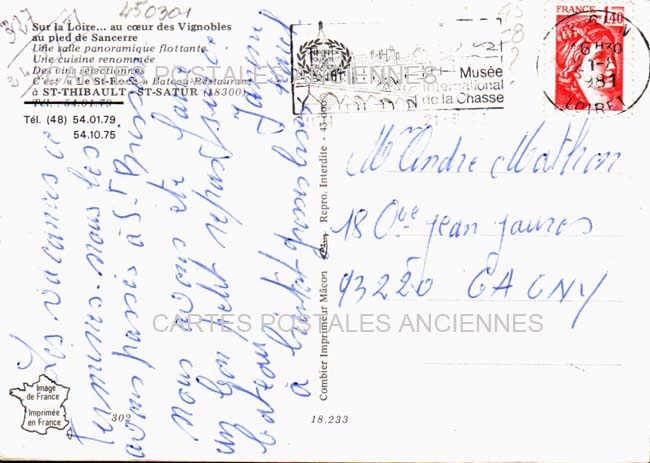 450301
Sur la Loire... au cœur des Vignobles
au pied de Sancerre
Une salle panoramique flottante
Une cuisine renommée
Des vins sélectionnés
C'est « Le St-Roch » Bateau-Restaurant
à ST-THIBAULT - ST-SATUR (18300)
Tél. : 54.01.79
Tél. (48) 54.01.79,
54.10.75
FRANCE
1,40
16H30
1-8
1981
LOIRET
Musée
international
de la Chasse
CARTES POSTALES ANCIENNES
Les vacances se
terminent. nous les
avons passés à St
nous avons été faire
un bon petit repas sur ce
bateau
à bientôt
Combier Imprimeur Mâcon
Repro. Interdite
Mr André Mathon
18 Que jean jaures
93220 GAGNY
CARTES POSTALES ANCIENNES
Image
de France
Imprimée
en France
302
18.233